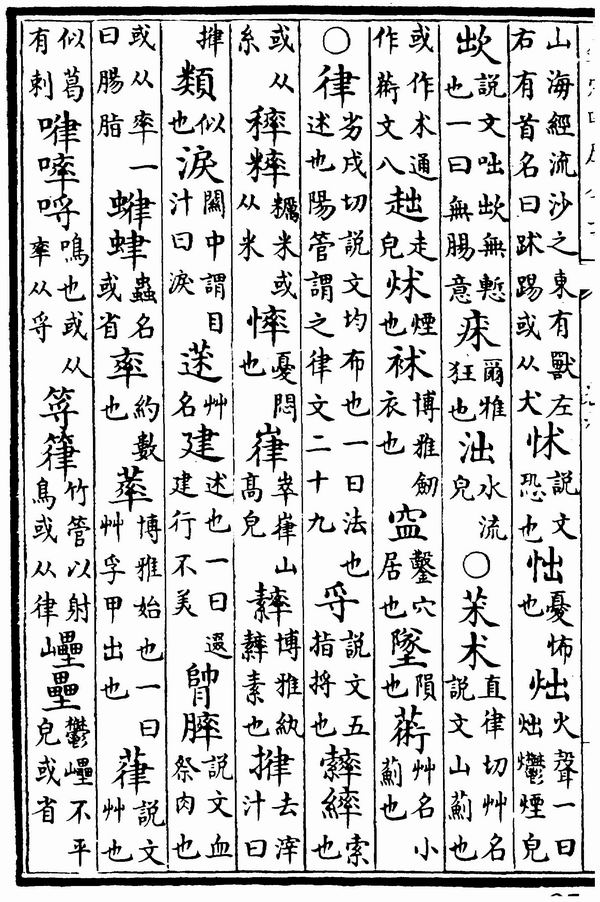 山海經流沙之東有獸左右有首名曰𧿒踢或从犬怵說文恐也㤕憂怖也炪火聲一曰炪鬱煙皃
欪說文咄欪無慙也一曰無腸意爾雅狂也泏水流皃○荗朮直律切艸名說文山薊也
或作术通作文八䟣走皃炢煙也袕博雅劒衣也窋鑿穴居也墜隕也艸名小薊也
○律劣戌切說文均布也一曰法也述也陽管謂之律文二十九寽說文五指捋也繂索也
或从糸糲米或从米憂悶也嵂崒嵂山高皃博雅紈素也㧒去滓汁曰
㧒類似也淚關中謂目汁曰淚蒁艸名建述也一曰建行不美膟說文血祭肉也
或从率一曰腸脂蟲名或省率約數也博雅始也一曰艸孚甲出也葎說文艸也
似葛有刺鳴也或从率从寽竹管以射鳥或从律鬱不平皃或省